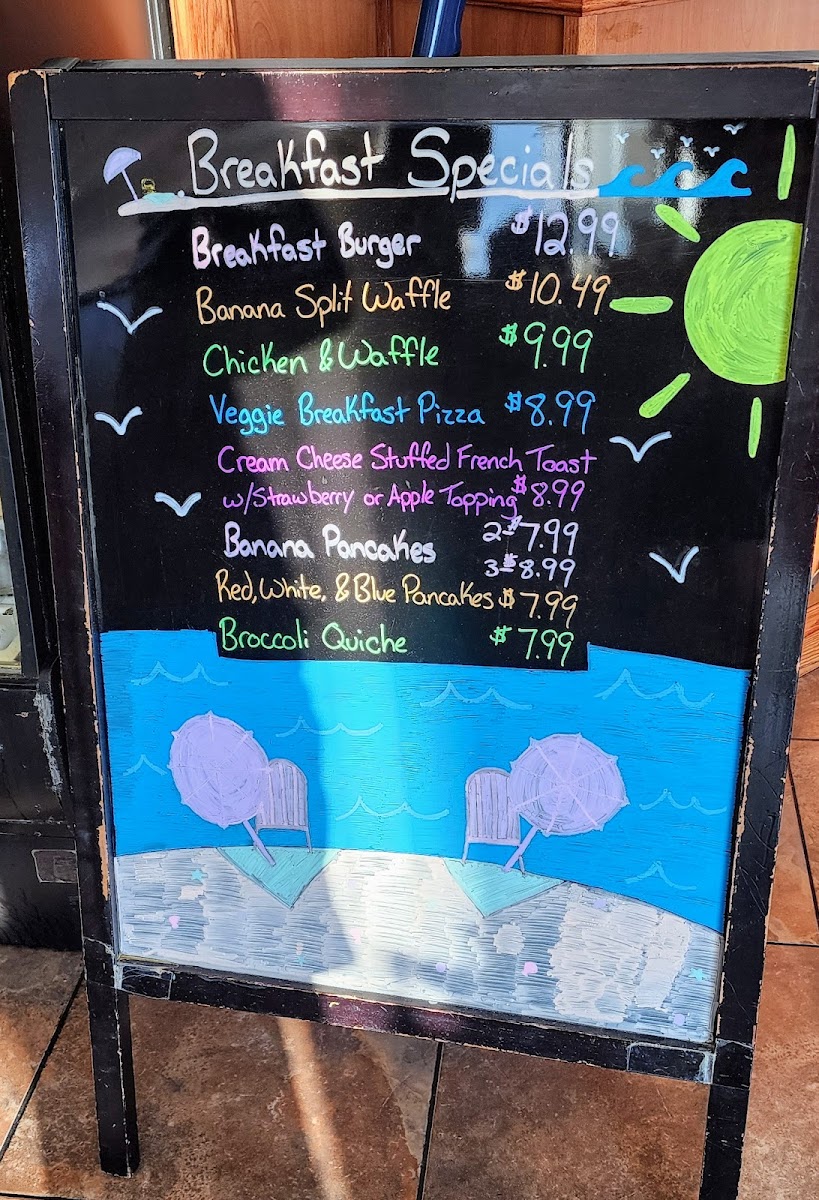 Breakfast Specials
Breakfast Burger $12.99
Banana Split Waffle $10.49
Chicken & Waffle $9.99
Veggie Breakfast Pizza $8.99
Cream Cheese Stuffed French Toast
w/Strawberry or Apple Topping $8.99
Banana Pancakes 2-$7.99
3-$8.99
Red, White, & Blue Pancakes $7.99
Broccoli Quiche $7.99